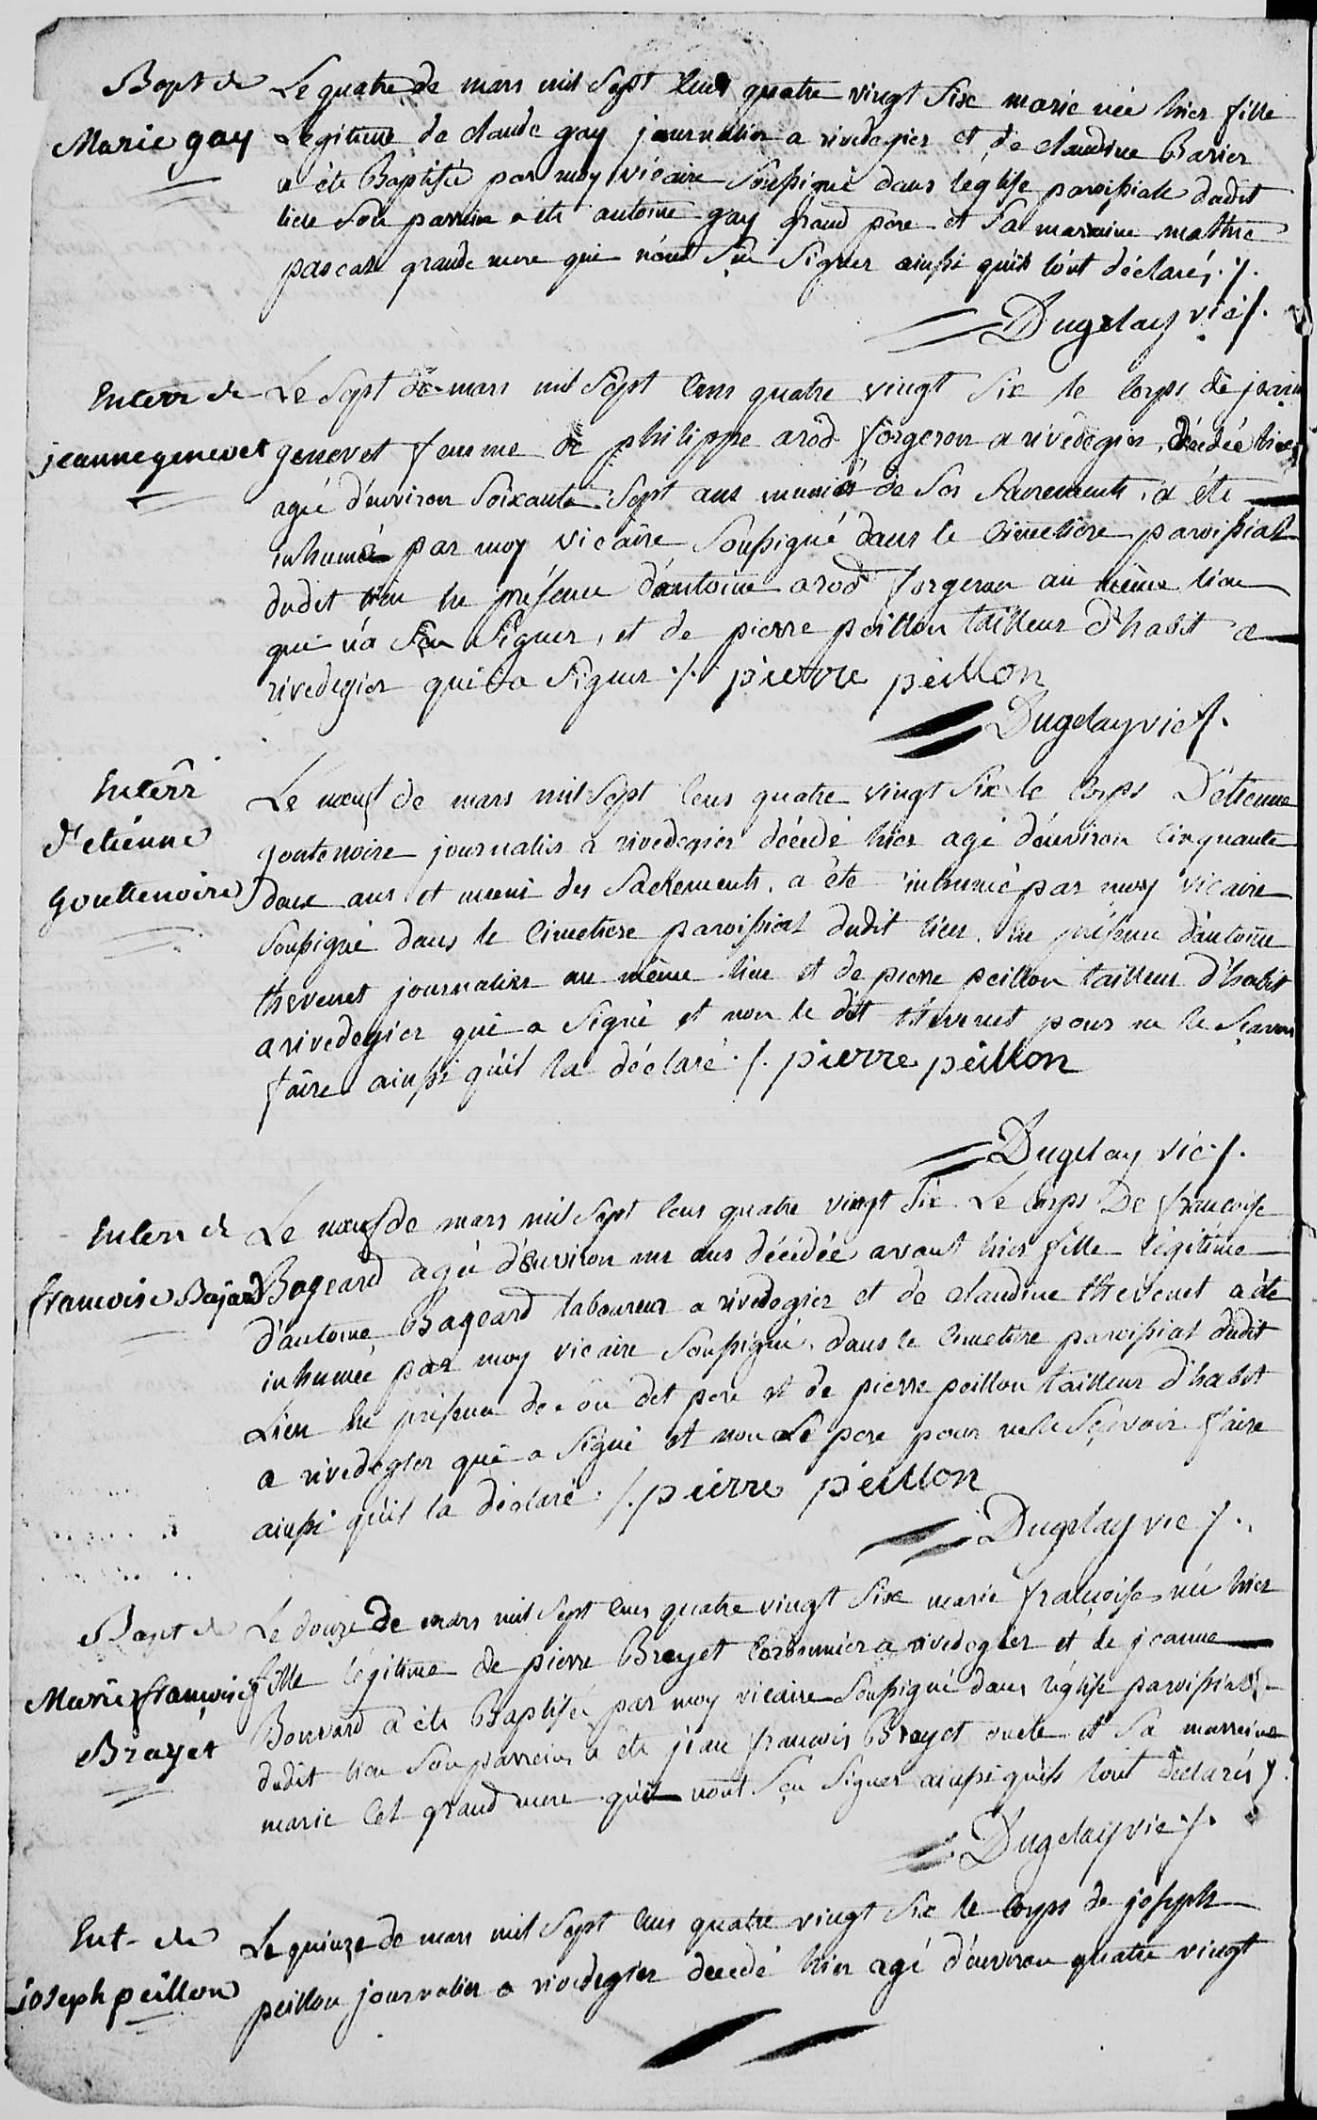 Bapt de
Marie gay
Le quatre de mars mil sept cens quatre vingt six marie née hier fille
Legitime de claude gay journalier a rivedegier et de claudine Barier
a été Baptisée par moy vicaire soussigné dans leglise paroissiale dudit
lieu son parrain a été antoine gay grand pere et sa marraine mathie
pascale grande mere qui n'ont sçu signer ainsi qu'ils l'ont déclaré ./.
Dugelay vic ./.
Enterr de
jeanne genevet
Le sept de mars mil sept cens quatre vingt six le corps de jeanne
genevet femme de philippe arod forgeron a rivedegier décédée hier
agée d'environ soixante sept ans munie de ses sacrements, a été
inhumée par moy vicaire soussigné dans le cimetiere paroissial
dudit lieu en presence d'antoine arod forgeron au même lieu
qui n'a sçu signer, et de pierre peillon tailleur d'habit a
rivedegier qui a signer ./. pierre peillon
Dugelay vic ./.
Enterr
d'etienne
gouttenoire
Le neuf de mars mil sept cens quatre vingt six le corps D'étienne
goutenoire journalier a rivedegier décédé hier agé d'environ cinquante
deux ans et muni des sacrements, a été inhumé par moy vicaire
soussigné dans le cimetiere paroissial dudit lieu, en présence d'antoine
thevenet journalier au même lieu et de pierre peillon tailleur d'habit
a rivedegier qui a signé et non le dit thevenet pour ne le sçavoir
faire ainsi qu'il la déclaré ./. pierre peillon
Dugelay vic ./.
Enterr de
francoise Bajard
Le neuf de mars mil sept cens quatre vingt six Le corps De francoise
Bageard agée d'environ un ans décédée avant hier fille légitime
d'antoine Bageard laboureur a rivedegier et de claudine thevenet a été
inhumée par moy vicaire soussigné, dans le cimetiere paroissial dudit
Lieu en présence de son dit pere et de pierre peillon tailleur d'habit
a rivedegier qui a signé et non Le pere pour ne le sçavoir faire
ainsi qu'il la déclaré ./. pierre peillon
Dugelay vic ./.
Bapt de
Marie francoise
Brayet
Le douze de mars mil sept cens quatre vingt six marie francoise née hier
fille légitime de pierre Brayet cordonnier a rivedegier et de jeanne
Bonnard a été Baptisée par moy vicaire soussigné dans l'église paroissiale
dudit lieu son parrein a été jean francois Brayet oncle et sa marreine
marie grand mere qui nont sçu signer ainsi qu'ils l'ont déclarés ./.
Dugelay vic ./.
Ent. de
joseph peillon
Le quinze de mars mil sept cens quatre vingt six le corps de joseph
peillon journalier a rivedegier decedé hier agé d'environ quatre vingt